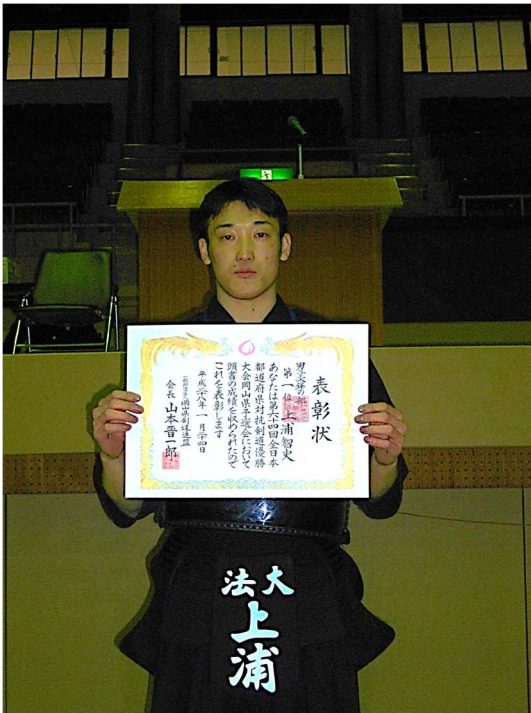 表彰状
男子次鋒の部
第一位 上浦智史
あなたは第六十四回全日本
都道府県対抗剣道優勝
大会岡山県予選会において
頭書の成績を収められたので
これを表彰します
平成二十八年一月二十四日
岡山県剣道連盟
会長 山本晋一郎
大
法
上浦